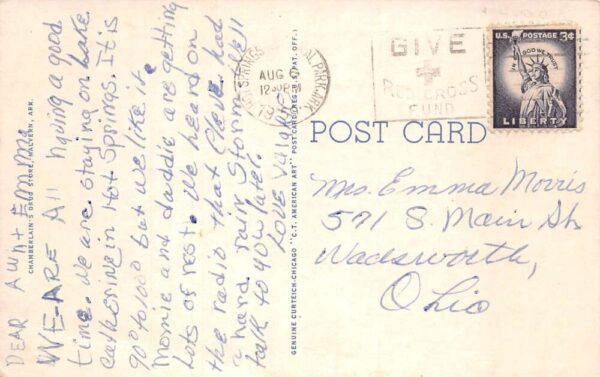 DEAR Awnt Emma
WE-ARE All having a good
time. we are staying on Lake
Catherine in Hot Springs. It is
90° to 100° but we like it.
Momie and daddie are getting
Lots of rest. We heard on
the radio that Cleve. had
a hard rain Storm. We'll
talk to you later.
Love
CHAMBERLAIN'S DRUG STORE, MALVERN, ARK.
GENUINE CURTEICH-CHICAGO "C.T. AMERICAN ART" POST CARD (REG. U.S. PAT. OFF.)
SPRINGS
AUG
PM
GIVE
RED CROSS
FUND
U.S. POSTAGE 3¢
IN GOD WE TRUST
LIBERTY
POST CARD
Mrs. Emma Morris
571 S. Main St.
Wadsworth,
Ohio